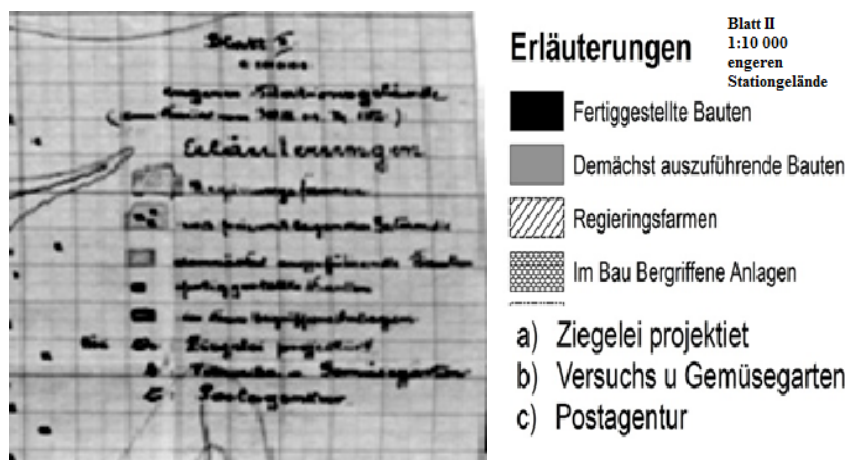 Blatt
engeren Stationsgelände
Erläuterungen
Regierungsfarmen
demnächst auszuführende Bauten
fertiggestellte Bauten
in Bau begriffene Anlagen
Ziegelei projektiert
b. Versuchs u. Gemüsegarten
c. Postagentur
Erläuterungen
Blatt II
1:10 000
engeren
Stationgelände
Fertiggestellte Bauten
Demächst auszuführende Bauten
Regieringsfarmen
Im Bau Bergriffene Anlagen
a) Ziegelei projektiet
b) Versuchs u Gemüsegarten
c) Postagentur